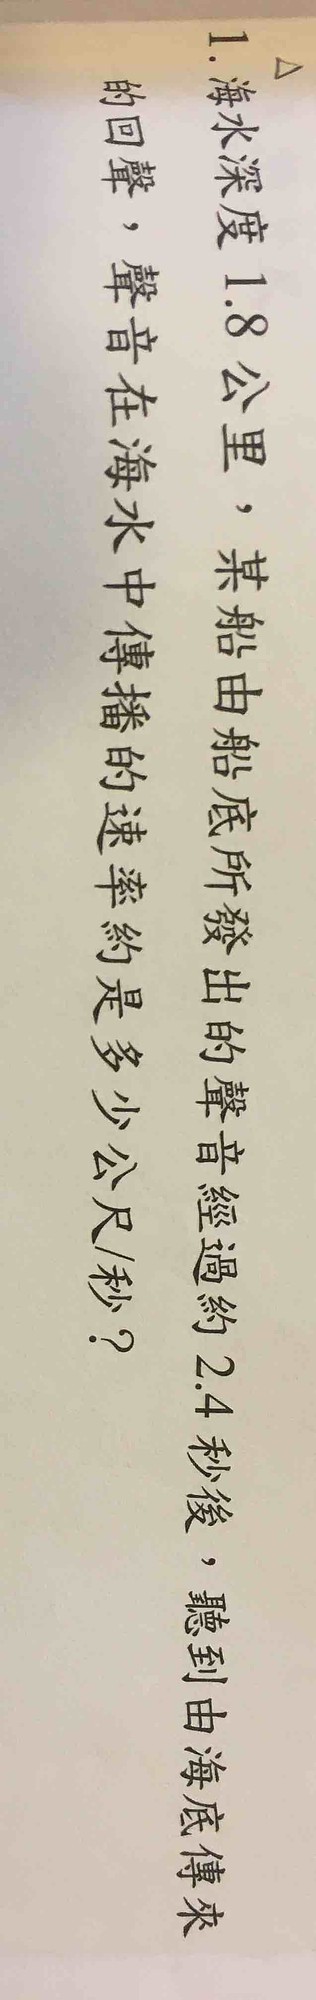 △
1. 海水深度 1.8 公里，某船由船底所發出的聲音經過約 2.4 秒後，聽到由海底傳來
的回聲，聲音在海水中傳播的速率約是多少公尺/秒？